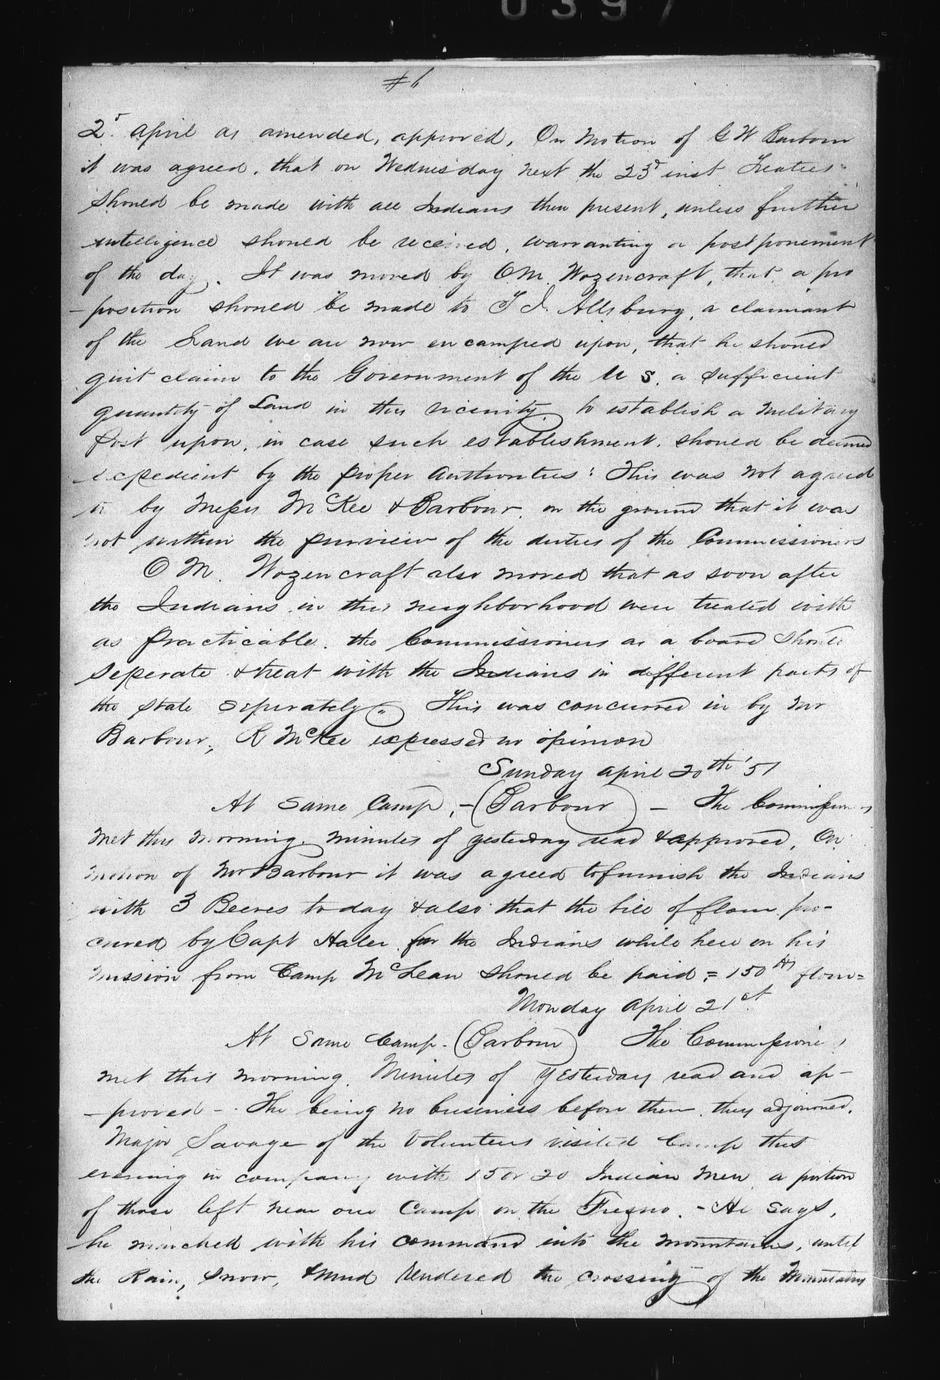 0397
#6
2d. April as amended, approved. On Motion of G W Barbour
it was agreed, that on Wednesday next the 23d inst Treaties
should be made with all Indians then present, unless further
intelligence should be received, warranting a postponement
of the day. It was moved by O M. Wozencraft, that a pro
-position should be made to Allsbury, a claimant
of the Land we are now encamped upon, that he should
quit claim to the Government of the U S. a sufficient
quantity of Land in this vicinity to establish a Military
Post upon, in case such establishment, should be deemed
expedient by the proper Authorities: This was not agreed
to by Messrs McKee & Barbour, on the ground that it was
not within the purview of the duties of the Commissioners
O M. Wozencraft also moved that as soon after
the Indians in this neighborhood were treated with
as practicable. the Commissioners as a board should
seperate & treat with the Indians in different parts of
the State seperately. This was concurred in by Mr
Barbour, R McKee expressed no opinion
Sunday April 20th '51
At Same Camp, - (Barbour) - The Commissioners
met this morning, minutes of yesterday read & approved, On
motion of Mr Barbour it was agreed to furnish the Indians
with 3 Beeves to day & also that the bill of flour pro-
cured by Capt Haler for the Indians while here on his
mission from Camp McLean should be paid = 150 lbs flour=
Monday April 21st.
At Same Camp - (Barbour) The Commissioners
met this morning. Minutes of yesterday read and ap-
-proved -. The being no business before them, they adjourned.
Major Savage of the Volunteers visited Camp this
evening in company with 15 or 20 Indian Men, a portion
of those left near our Camp on the Fresno. - He says,
he marched with his command into the mountains, until
the Rain, Snow, & mud rendered the crossing of the Mountains